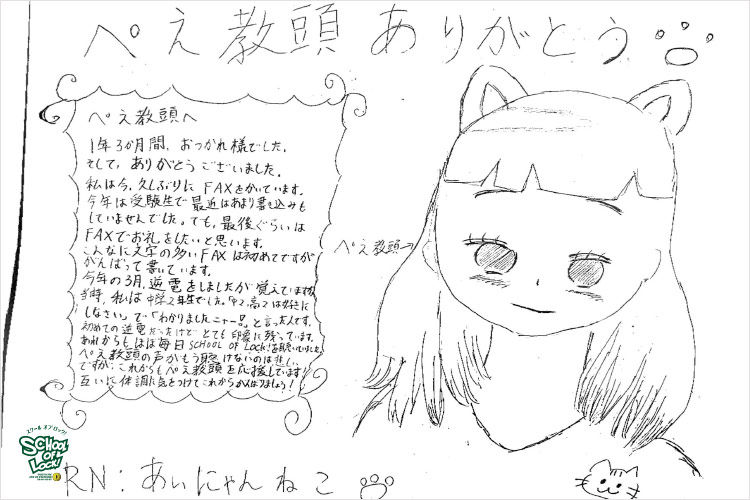 ぺえ教頭ありがとう
ぺえ教頭へ
1年3か月間、おつかれ様でした。
そして、ありがとうございました。
私は今、久しぶりにFAXをかいています。
今年は受験生で最近はあまり書き込みも
していませんでした。でも、最後ぐらいは
FAXでお礼をしたいと思います。
こんなに文字の多いFAXは初めてですが
がんばって書いています。
今年の3月、逆電をしましたが覚えていますか
当時、私は中学2年生でした。「中2、高2は好きに
しなさい」で「わかりましたニャー!」と言った人です。
初めての逆電だったけど とても印象に残っています。
あれからもほぼ毎日SCHOOL OF LOCK!を聴いていました
ぺえ教頭の声がもう聴けないのは悲しい
ですが、これからもぺえ教頭を応援しています!
互いに体調に気をつけてこれからがんばりましょう!
ぺえ教頭→
スクール オブ ロック!
SCHOOL OF LOCK!
RN:あいにゃんねこ